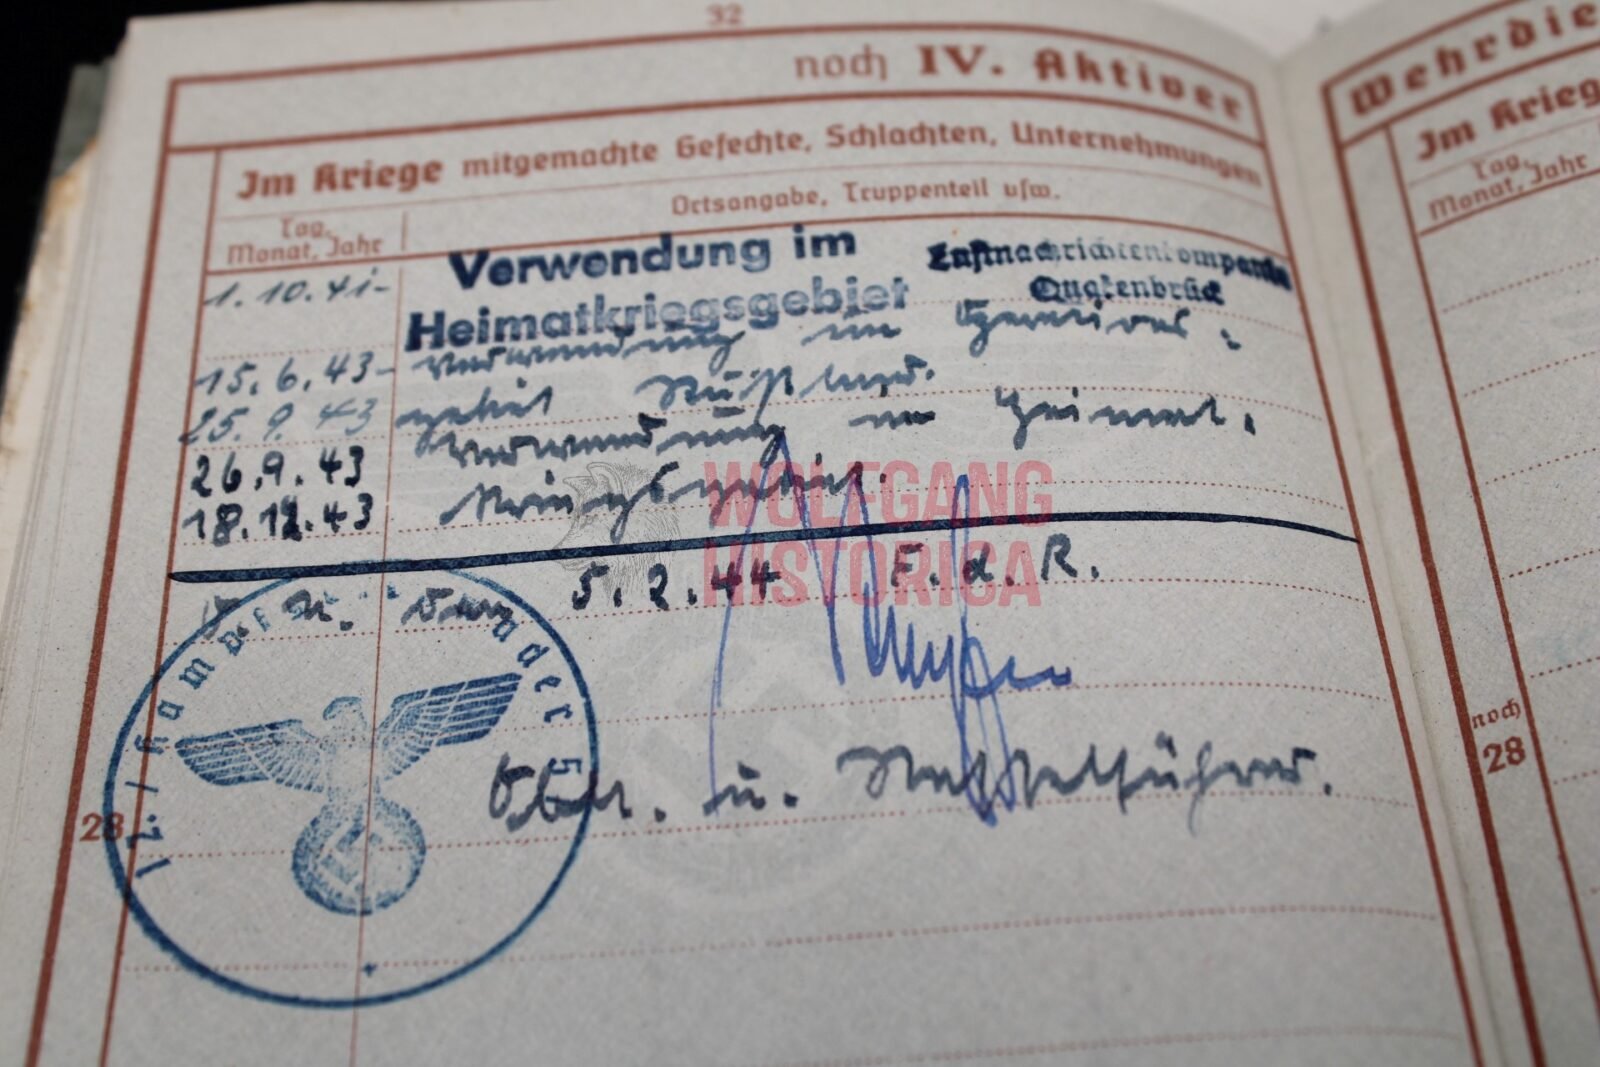 32
noch IV. Aktiver
Im Kriege mitgemachte Gefechte, Schlachten, Unternehmungen
Tag, Monat, Jahr
Ortsangabe, Truppenteil usw.
1.10.41- Verwendung im Heimatkriegsgebiet Luftnachrichtenkompanie Quakenbrück
15.6.43- Verwendung im Operations-
25.9.43 gebiet Rußland.
26.9.43 Verwendung im Heimat-
18.12.43 kriegsgebiet.
O. U. den 5.2.44 F.d.R.
Oblt. u. Staffelführer.
12/Kampfgeschwader 5
28
Wehrdie
Im Krieg
Tag, Monat, Jahr
noch
28
WOLFGANG
HISTORICA